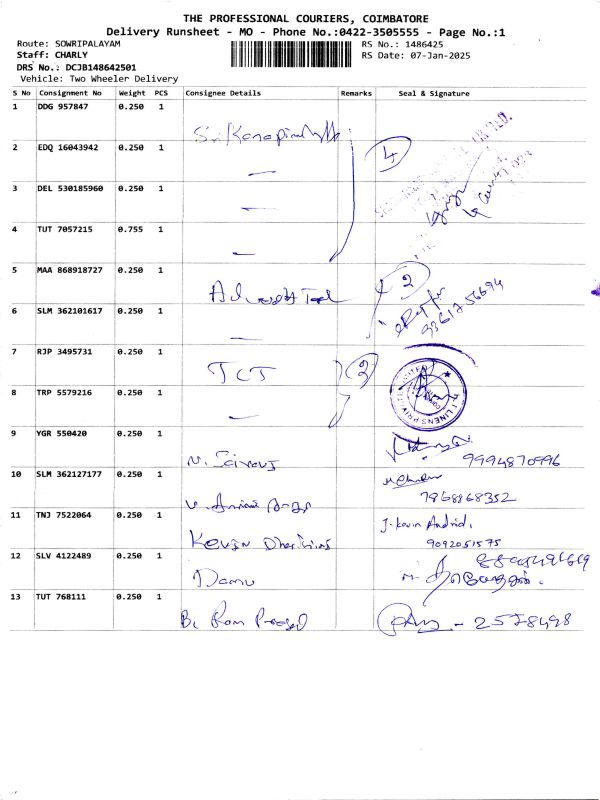 THE PROFESSIONAL COURIERS, COIMBATORE
Delivery Runsheet - MO - Phone No.:0422-3505555 - Page No.:1
Route: SOWRIPALAYAM
RS No.: 1486425
Staff: CHARLY
RS Date: 07-Jan-2025
DRS No.: DCJB148642501
Vehicle: Two Wheeler Delivery
S No Consignment No Weight PCS Consignee Details Remarks Seal & Signature
1 DDG 957847 0.250 1
2 EDQ 16043942 0.250 1 4
3 DEL 530185960 0.250 1
4 TUT 7057215 0.755 1
5 MAA 868918727 0.250 1 2
9361756694
6 SLM 362101617 0.250 1
7 RJP 3495731 0.250 1 TCT
8 TRP 5579216 0.250 1
9 YGR 550420 0.250 1
9994870996
10 SLM 362127177 0.250 1
7968868352
11 TNJ 7522064 0.250 1 Kevin
J. Kevin
9092051575
12 SLV 4122489 0.250 1 Damu
13 TUT 768111 0.250 1 B. Ram Prasad - 2578498